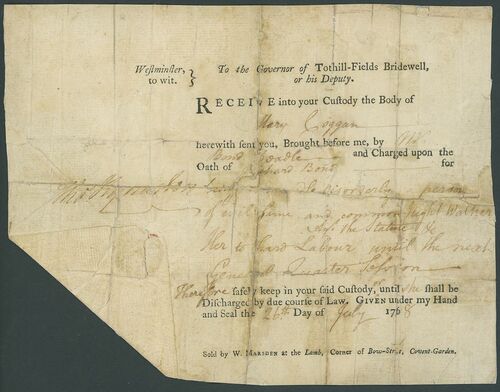 Westminster, to wit. } To the Governor of Tothill-Fields Bridewell,
or his Deputy.
RECEIVE into your Custody the Body of
Mary Coggan
herewith sent you, Brought before me, by Mr
Bond Beadle and Charged upon the
Oath of Richard Bond for
disorderly person
of evil fame and common Night Walker
by the Statute &c
her to hard Labour until the next
General Quarter Session
Therefore safely keep in your said Custody, until she shall be
Discharged by due course of Law. GIVEN under my Hand
and Seal the 26th Day of July 1768
Sold by W. MARSDEN at the Lamb, Corner of Bow-Street, Covent-Garden.